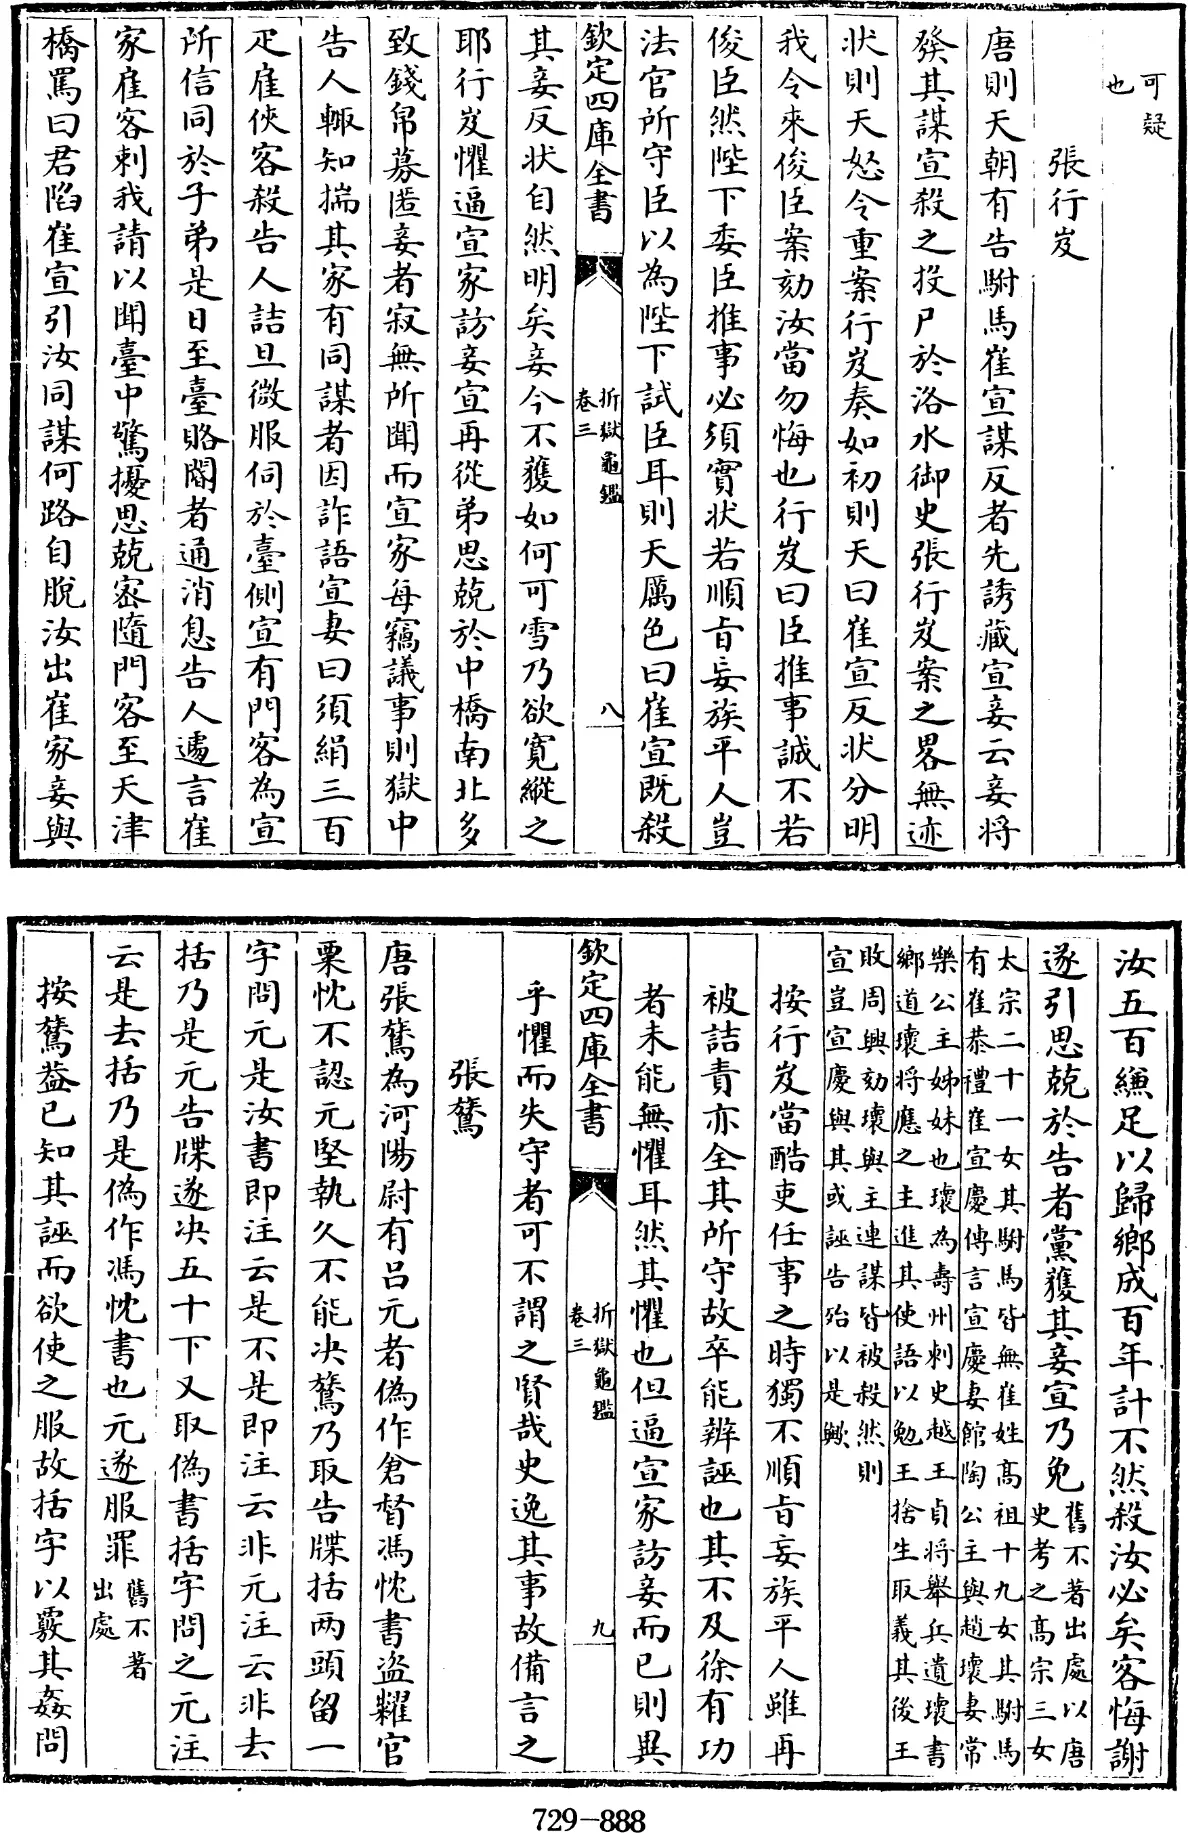 可疑
也
張行岌
唐則天朝有告駙馬崔宣謀反者先誘藏宣妾云妾將
發其謀宣殺之投尸於洛水御史張行岌案之畧無迹
狀則天怒令重案行岌奏如初則天曰崔宣反狀分明
我令來俊臣案劾汝當勿悔也行岌曰臣推事誠不若
俊臣然陛下委臣推事必須實狀若順旨妄族平人豈
法官所守臣以為陛下試臣耳則天厲色曰崔宣既殺
欽定四庫全書
折獄龜鑑
卷三
八
其妾反狀自然明矣妾今不獲如何可雪乃欲寬縱之
耶行岌懼逼宣家訪妾宣再從弟思兢於中橋南北多
致錢帛募匿妾者寂無所聞而宣家每竊議事則獄中
告人輙知揣其家有同謀者因詐語宣妻曰須絹三百
疋雇俠客殺告人詰旦微服伺於臺側宣有門客為宣
所信同於子弟是日至臺賂閽者通消息告人遽言崔
家雇客刺我請以聞臺中驚擾思兢密隨門客至天津
橋罵曰君陷崔宣引汝同謀何路自脫汝出崔家妾與
汝五百縑足以歸鄉成百年計不然殺汝必矣客悔謝
遂引思兢於告者黨獲其妾宣乃免
舊不著出處以唐
史考之高宗三女
太宗二十一女其駙馬皆無崔姓高祖十九女其駙馬
有崔恭禮崔宣慶傳言宣慶妻館陶公主與趙瓌妻常
樂公主姊妹也瓌為壽州刺史越王貞將舉兵遺瓌書
鄉道瓌將應之主進其使語以勉王捨生取義其後王
敗周興劾瓌與主連謀皆被殺然則
宣豈宣慶與其或誣告殆以是歟
按行岌當酷吏任事之時獨不順旨妄族平人雖再
被詰責亦全其所守故卒能辨誣也其不及徐有功
者未能無懼耳然其懼也但逼宣家訪妾而已則異
欽定四庫全書
折獄龜鑑
卷三
九
乎懼而失守者可不謂之賢哉史逸其事故備言之
張鷟
唐張鷟為河陽尉有呂元者偽作倉督馮忱書盜糶官
粟忱不認元堅執久不能决鷟乃取告牒括两頭留一
字問元是汝書即注云是不是即注云非元注云非去
括乃是元告牒遂决五十下又取偽書括字問之元注
云是去括乃是偽作馮忱書也元遂服罪
舊不著
出處
按鷟葢已知其誣而欲使之服故括字以覈其姦問
729-888